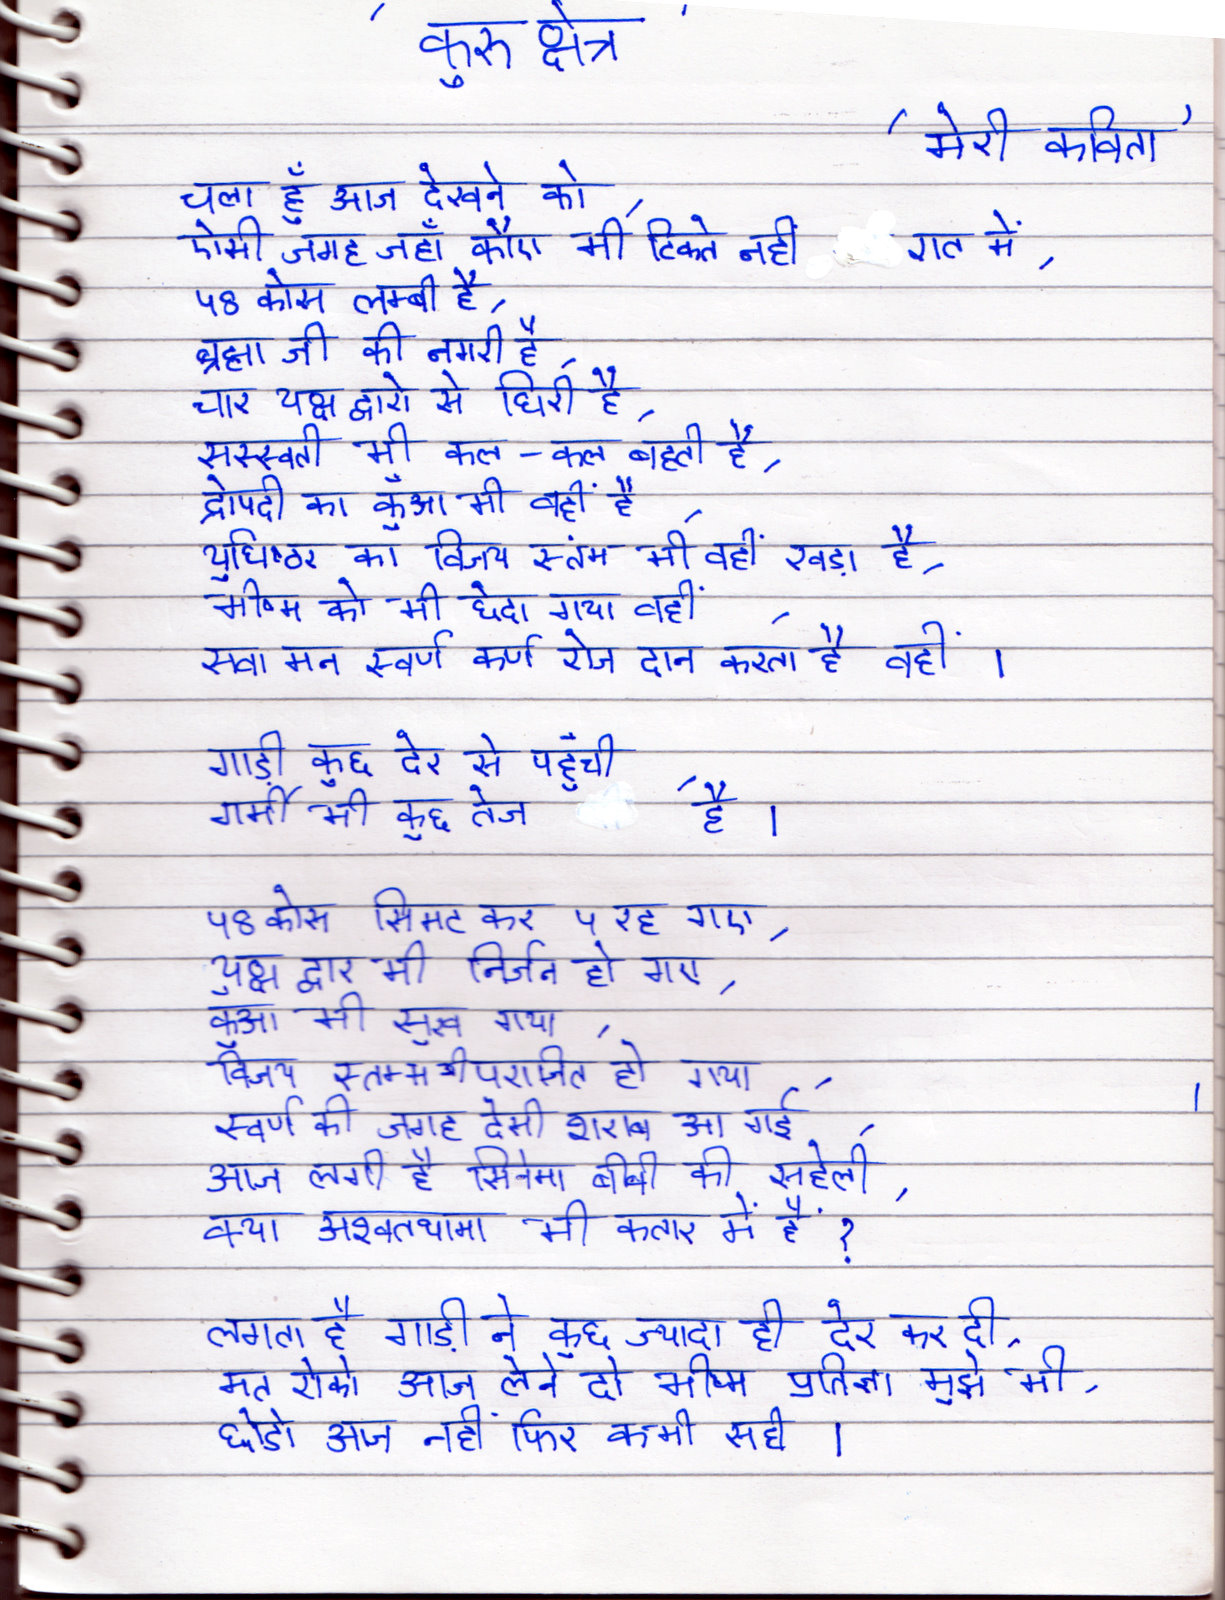 'कुरुक्षेत्र'
'मेरी कविता'
चला हुँ आज देखने को,
ऐसी जगह जहाँ कौए भी टिकते नहीं रात में,
५८ कोस लम्बी है,
ब्रह्मा जी की नगरी है,
चार यक्ष द्वारो से घिरी है,
सरस्वती भी कल-कल बहती है,
द्रोपदी का कुँआ भी वहीं है,
युधिष्ठर का विजय स्तंभ भी वहीं खड़ा है,
भीष्म को भी छेदा गया वहीं,
सवा मन स्वर्ण कर्ण रोज दान करता है वहीं ।
गाड़ी कुछ देर से पहुँची,
गर्मी भी कुछ तेज है ।
५८ कोस सिमट कर ५ रह गए,
यक्ष द्वार भी निर्जन हो गए,
कुँआ भी सुख गया,
विजय स्तम्भ भी पराजित हो गया,
स्वर्ण की जगह देसी शराब आ गई,
आज लगी है सिनेमा बीबी की सहेली,
क्या अश्वतथामा भी कतार में हैं ?
लगता है गाड़ी ने कुछ ज्यादा ही देर कर दी,
मत रोको आज लेने दो भीष्म प्रतिज्ञा मुझे भी,
छोडो आज नहीं फिर कभी सही ।